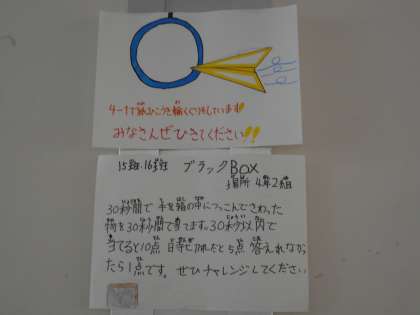 4-1で紙ひこうき輪くぐりをしています!!
みなさんぜひきてください!!
15班.16班 ブラックBox
場所 4年2組
30秒間で 手を箱の中につっこんでさわった
物を30秒間で当てます。30秒以内で
当てると10点
5点 答えれなかっ
たら1点です。ぜひチャレンジしてください